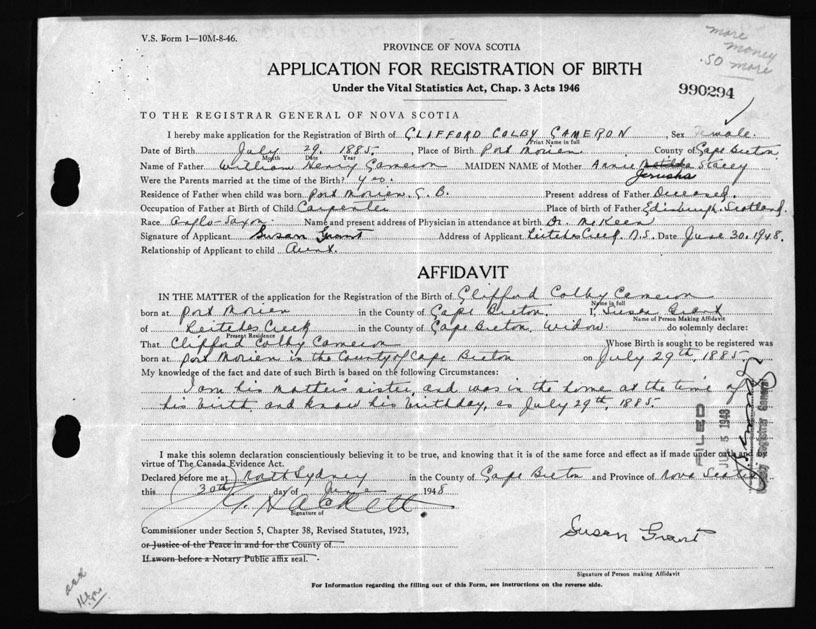 V.S. Form 1—10M-8-46.
more
money
.50 more
PROVINCE OF NOVA SCOTIA
APPLICATION FOR REGISTRATION OF BIRTH
Under the Vital Statistics Act, Chap. 3 Acts 1946
990294
TO THE REGISTRAR GENERAL OF NOVA SCOTIA
I hereby make application for the Registration of Birth of CLIFFORD COLBY CAMERON, Sex
Print Name in full
Date of Birth July 29. 1885, Place of Birth Port Morien. County of Cape Breton.
Month Date Year
Name of Father William Henry Cameron MAIDEN NAME of Mother Annie Stacey
Jerusha
Were the Parents married at the time of the Birth? yes.
Residence of Father when child was born Port Morien. C. B. Present address of Father Deceased.
Occupation of Father at Birth of Child Carpenter Place of birth of Father Edinburgh. Scotland.
Race Anglo-Saxon. Name and present address of Physician in attendance at birth Dr. McKeen
Signature of Applicant Susan Grant Address of Applicant Leitches Creek. N.S. Date June 30. 1948.
Relationship of Applicant to child Aunt.
AFFIDAVIT
IN THE MATTER of the application for the Registration of the Birth of Clifford Colby Cameron
Name in full
born at Port Morien in the County of Cape Breton. I, Susan Grant
Name of Person Making Affidavit
of Leitches Creek in the County of Cape Breton, Widow. do solemnly declare:
Present Residence
That Clifford Colby Cameron Whose Birth is sought to be registered was
born at Port Morien in the County of Cape Breton on July 29th, 1885
My knowledge of the fact and date of such Birth is based on the following Circumstances:
I am his mother's sister, and was in the home at the time of
his birth, and know his birthday, as July 29th, 1885.
FILED
JUL 5 1948
Deputy Registrar General
I make this solemn declaration conscientiously believing it to be true, and knowing that it is of the same force and effect as if made under oath and
virtue of The Canada Evidence Act.
Declared before me at North Sydney in the County of Cape Breton and Province of Nova Scotia
this 30th day of June 1948
Signature of
Commissioner under Section 5, Chapter 38, Revised Statutes, 1923,
or Justice of the Peace in and for the County of
If sworn before a Notary Public affix seal.
Susan Grant
Signature of Person making Affidavit
For Information regarding the filling out of this Form, see instructions on the reverse side.